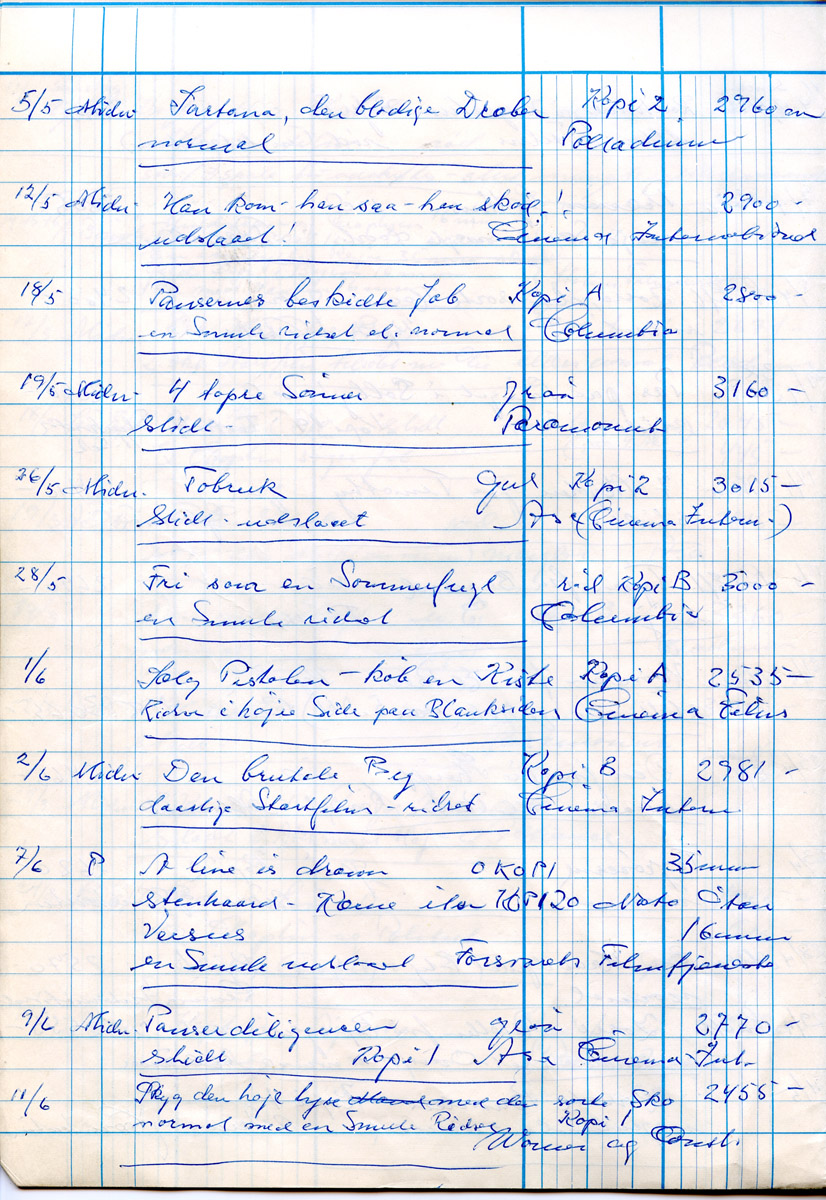 5/5 Midn. Sartana, den blodige Dræber Kopi 2 2960 m
normal Palladium
12/5 Midn. Han kom - han saa - han skød! 2900 -
udslaaet! Cinema International
18/5 Pansernes beskidte Job Kopi A 2800 -
en Smule ridset el. normal Columbia
19/5 Midn. 4 tapre Sønner grøn 3160 -
slidt - Paramount
26/5 Midn. Tobruk gul Kopi 2 3015 -
slidt - udslaaet Asa (Cinema Intern.)
28/5 Fri som en Sommerfugl rød Kopi B 3000 -
en Smule ridset Columbia
1/6 Sælg Pistolen - køb en Kiste Kopi A 2535 -
Ridser i højre Side paa Blanksiden Cinema
2/6 Midn Den brutale By Kopi B 2981 -
daarlige Startfilm - ridset Cinema Intern
7/6 P A line is drawn 0 KOPI 35mm
Stenhaard - KOPI 20 Nato
Versus 16mm
en Smule udslaaet Forsvarets Filmtjeneste
9/6 Midn. Panserdiligencen grøn 2770 -
slidt Kopi 1 Asa Cinema - Int.
11/6 den høje lyse med den sorte Sko 2455 -
normal med en Smule Ridser Kopi 1
Warner og Const.